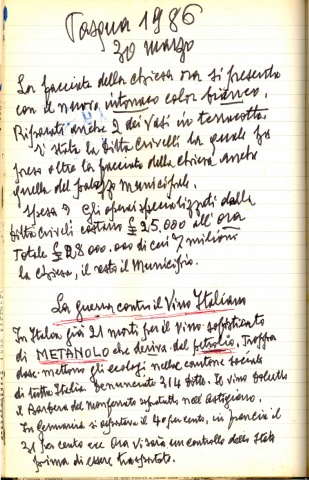 Pasqua 1986
30 marzo
La facciata della chiesa ora si presenta
con il nuovo intonaco color bianco.
Riparati anche 2 dei vasi in terracotta.
È stata la ditta Crivelli la quale ha
preso oltre la facciata della chiesa anche
quella del palazzo municipale.
Spesa? Gli operai specializzati della
ditta Crivelli costano £ 25.000 all'ora
Totale £ 28.000.000 di cui 7 milioni
la chiesa, il resto il Municipio.
La guerra contro il Vino Italiano
In Italia già 21 morti per il vino sofisticato
di METANOLO che deriva dal petrolio. Troppa
dose mettono gli ecologi nelle cantine sociali
di tutta Italia denunciate 314 ditte. Il vino Dolcetto
il Barbera del monferrato soprattutto nell'Astigiano.
In Germania si esportava il 40 per cento, in Francia il
31 per cento ecc Ora vi sarà un controllo dello Stato
prima di essere trasportato.